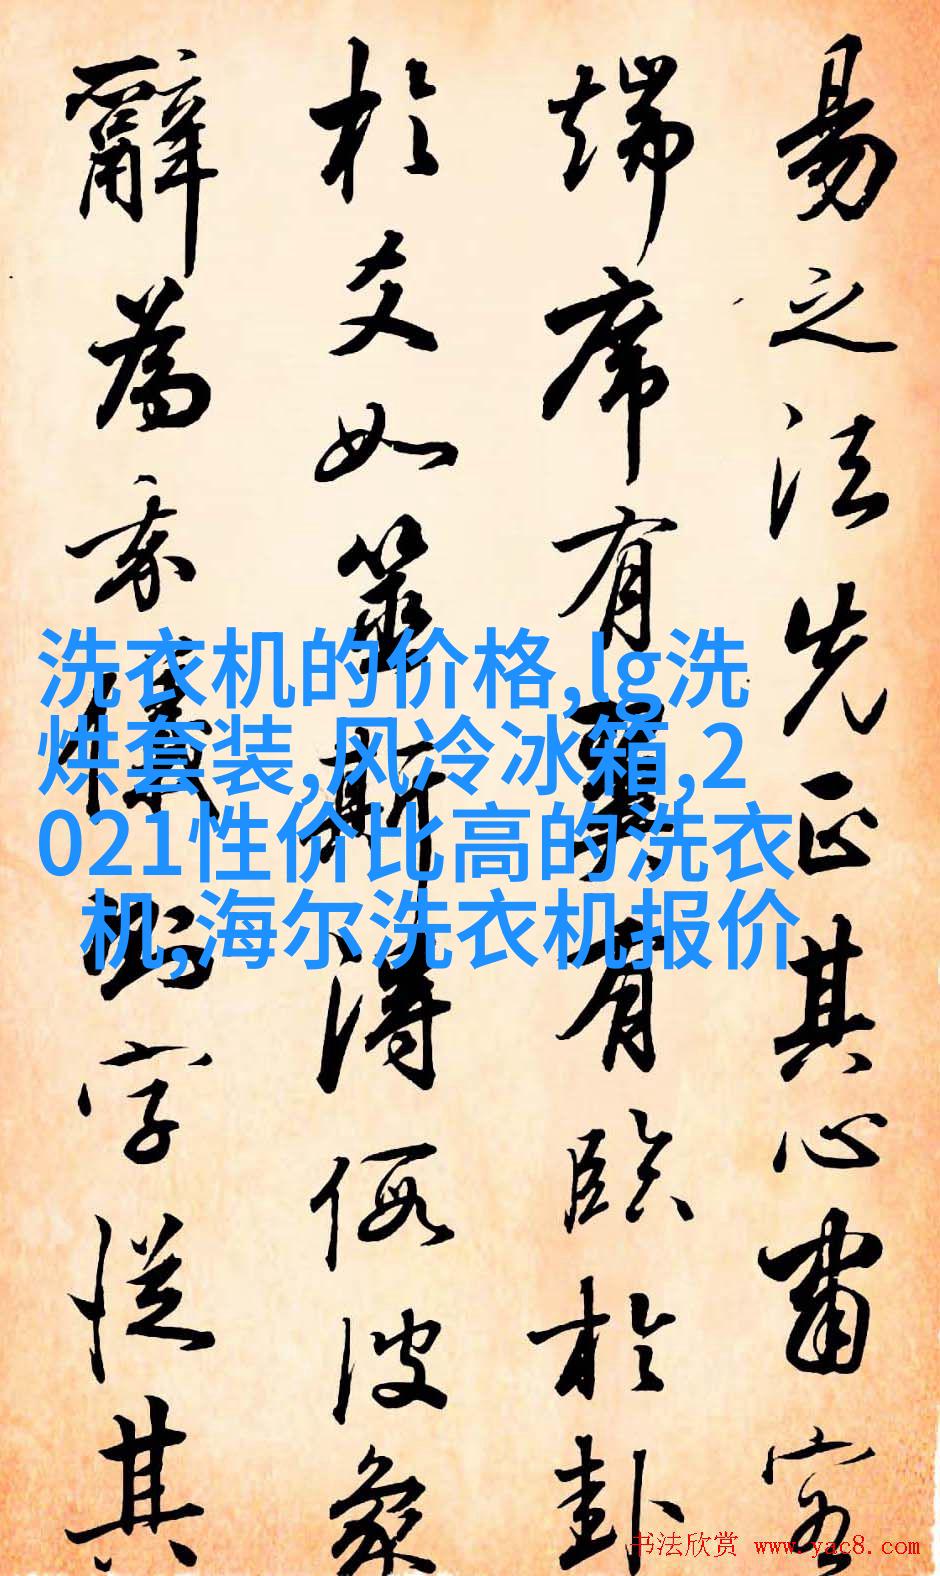 易之法先正其心肅容
端席有翼有臨於卦
於爻如筮斯得假彼象
辭為我儀則字從其
洗衣机的价格,lg洗
烘套装,风冷冰箱,2
021性价比高的洗衣
机,海尔洗衣机报价
书法欣赏 www.yac8.com